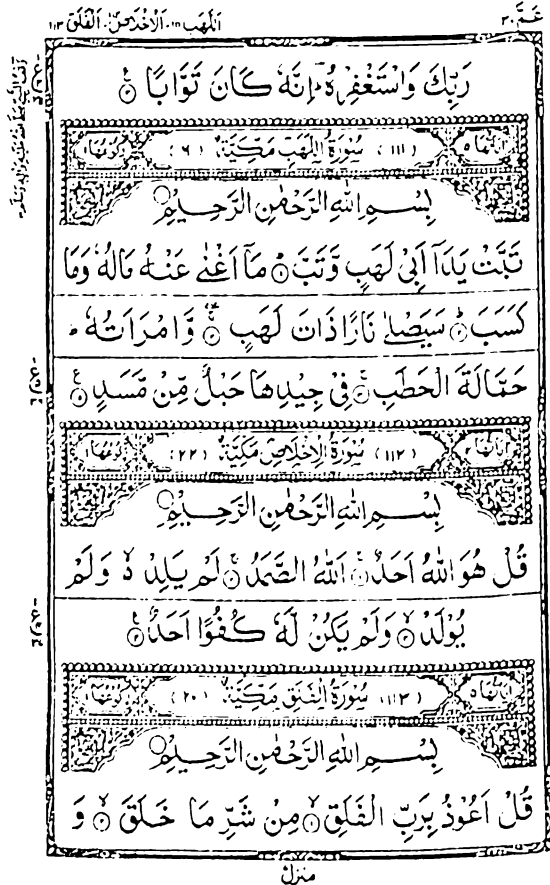 عَمَّ ٣٠ اَللَّهَب ١١١، اَلْاِخْلَاص ١١٢، اَلْفَلَق ١١٣
رَبِّكَ وَاسْتَغْفِرْهُ ؔؕ اِنَّهٗ كَانَ تَوَّابًا ۝٣
اٰيَاتُهَا ٥ (١١١) سُوْرَةُ اللَّهَبِ مَكِّيَّةٌ (٦) رُكُوْعُهَا ١
بِسْمِ اللّٰهِ الرَّحْمٰنِ الرَّحِيْمِ
تَبَّتْ يَدَاۤ اَبِيْ لَهَبٍ وَّتَبَّ ۝١ مَاۤ اَغْنٰى عَنْهُ مَالُهٗ وَمَا
كَسَبَ ۝٢ سَيَصْلٰى نَارًا ذَاتَ لَهَبٍ ۝٣ وَّامْرَاَتُهٗ ؕ
حَمَّالَةَ الْحَطَبِ ۝٤ فِيْ جِيْدِهَا حَبْلٌ مِّنْ مَّسَدٍ ۝٥
اٰيَاتُهَا ٤ (١١٢) سُوْرَةُ الْاِخْلَاصِ مَكِّيَّةٌ (٢٢) رُكُوْعُهَا ١
بِسْمِ اللّٰهِ الرَّحْمٰنِ الرَّحِيْمِ
قُلْ هُوَ اللّٰهُ اَحَدٌ ۝١ اَللّٰهُ الصَّمَدُ ۝٢ لَمْ يَلِدْ ەۙ وَلَمْ
يُوْلَدْ ۝٣ وَلَمْ يَكُنْ لَّهٗ كُفُوًا اَحَدٌ ۝٤
اٰيَاتُهَا ٥ (١١٣) سُوْرَةُ الْفَلَقِ مَكِّيَّةٌ (٢٠) رُكُوْعُهَا ١
بِسْمِ اللّٰهِ الرَّحْمٰنِ الرَّحِيْمِ
قُلْ اَعُوْذُ بِرَبِّ الْفَلَقِ ۝١ مِنْ شَرِّ مَا خَلَقَ ۝٢ وَ
منزل